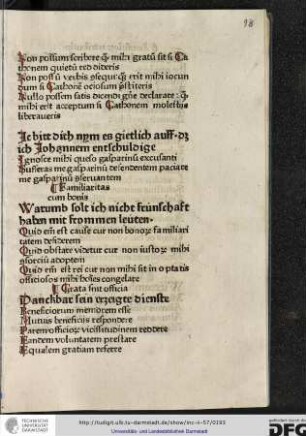 98
Non possum scribere q̄ mihi gratū sit si Ca
thonem quietū red dideris
Non possū verbis p̄sequi q̄ erit mihi iocun
dum si Cathonē ociosum p̄stiteris
Nullo possem satis dicendi gn̄e declarare : q̄
mihi erit acceptum si Cathonem molestijs
liberaueris
Ic bitt dich nym es gietlich auff dz
ich Johannem entschuldige
Ignosce mihi queso gasparinū excusanti
Sufferas me gasparinū defendentem paciare
me gasparinū seruantem
Familiaritas
cum bonis
Warumb solt ich nicht freünschaft
haben mit frommen leüten
Quid em̄ est cause cur non bonoꝝ familiari
tatem desiderem
Quid obstare videtur cur non iustoꝝ mihi
consorciū adoptem
Quid em̄ est rei cur non mihi sit in optatis
officiosos mihi homines congelare
Grata sint officia
Danckbar sein erzeigte dienste
Beneficiorum memorem esse
Mutuis beneficiis respondere
Parem officioꝝ vicissitudinem reddere
Eandem voluntatem prestare
Equalem gratiam referre
TECHNISCHE
UNIVERSITÄT
DARMSTADT
http://tudigit.ulb.tu-darmstadt.de/show/inc-ii-57/0193
Universitäts- und Landesbibliothek Darmstadt
gefördert durch die
DFG